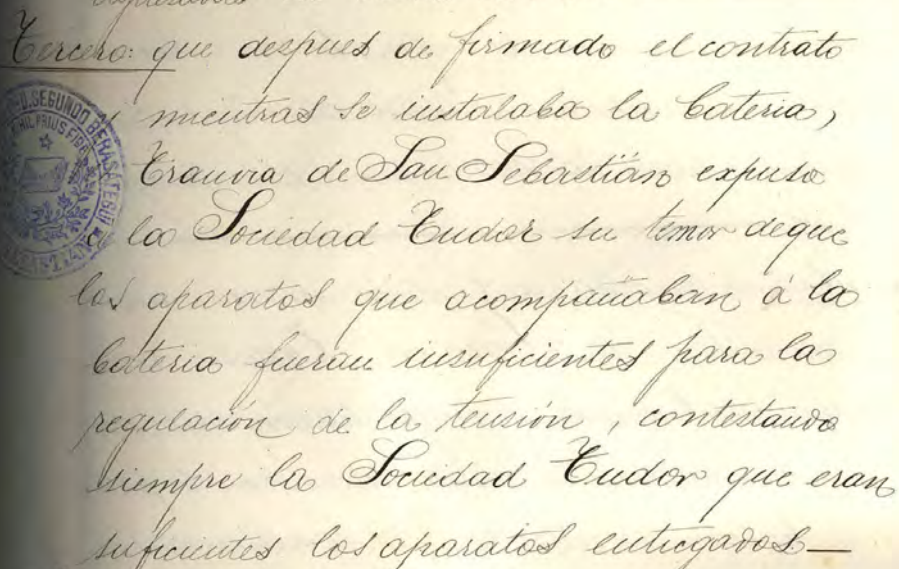 Tercero: que despues de firmado el contrato
y mientras se instalaba la bateria,
Tranvia de San Sebastián expuso
á la Sociedad Tudor su temor de que
los aparatos que acompañaban á la
bateria fueran insuficientes para la
regulación de la tensión, contestando
siempre la Sociedad Tudor que eran
suficientes los aparatos entregados—
D. SEGUNDO BERASATEGUI
NIHIL PRIUS FIDE